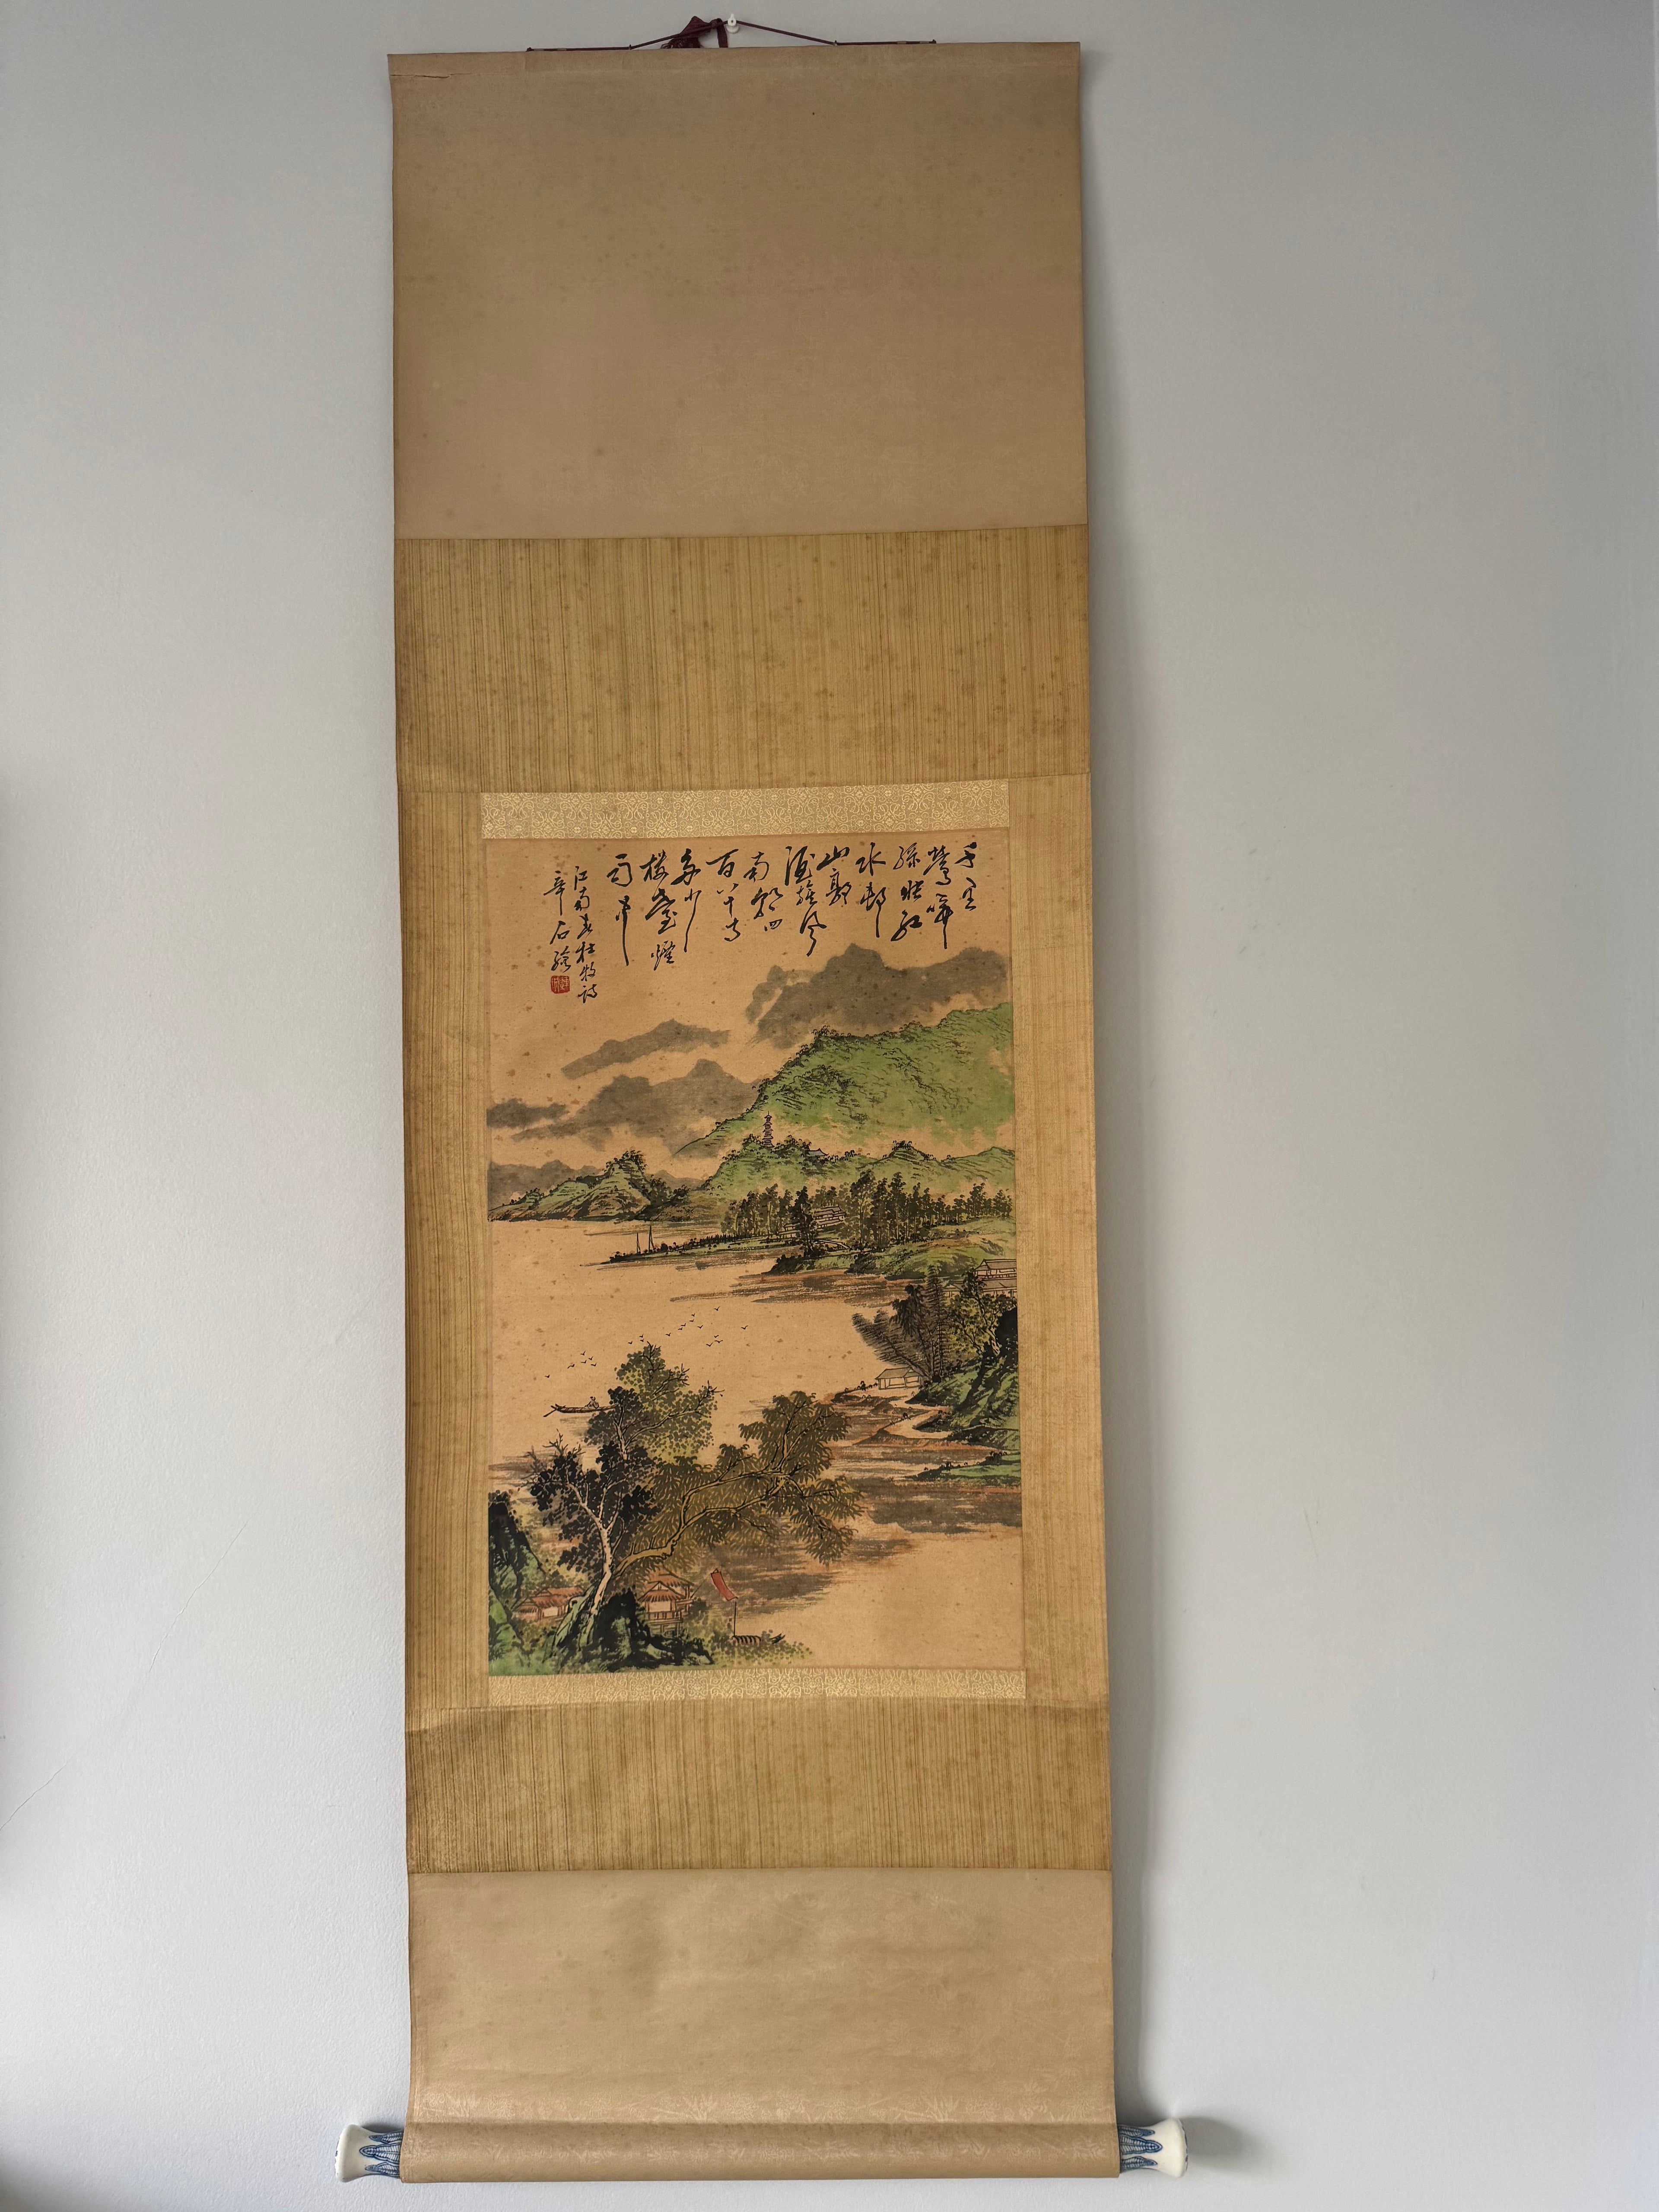 千里
鶯啼
綠映紅
水邨
山郭
酒旗風
南朝四
百八十寺
多少
楼臺煙
雨中
江南春杜牧詩
石